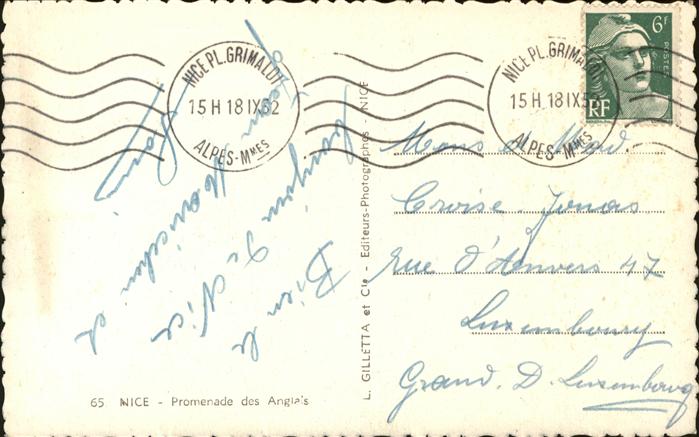 NICE PL. GRIMALDI
15H 18 IX 52
ALPES-MMES
NICE PL. GRIMALDI
15H 18 IX 52
ALPES-MMES
6F
POSTES
RF
Bien le
bonjour de Nice
et
L. GILLETTA et Cie - Editeurs-Photographes - NICE
Mons et Mad
Croise Jonas
Rue d'Anvers 47
Luxembourg
Grand. D. Luxembourg
65 NICE - Promenade des Anglais